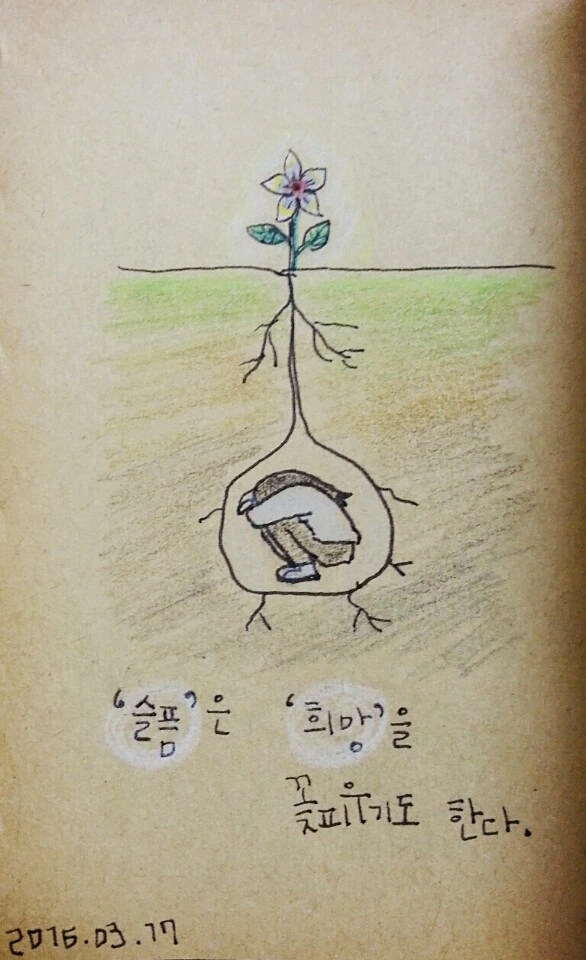 '슬픔'은 '희망'을
꽃피우기도 한다.
2015.03.17